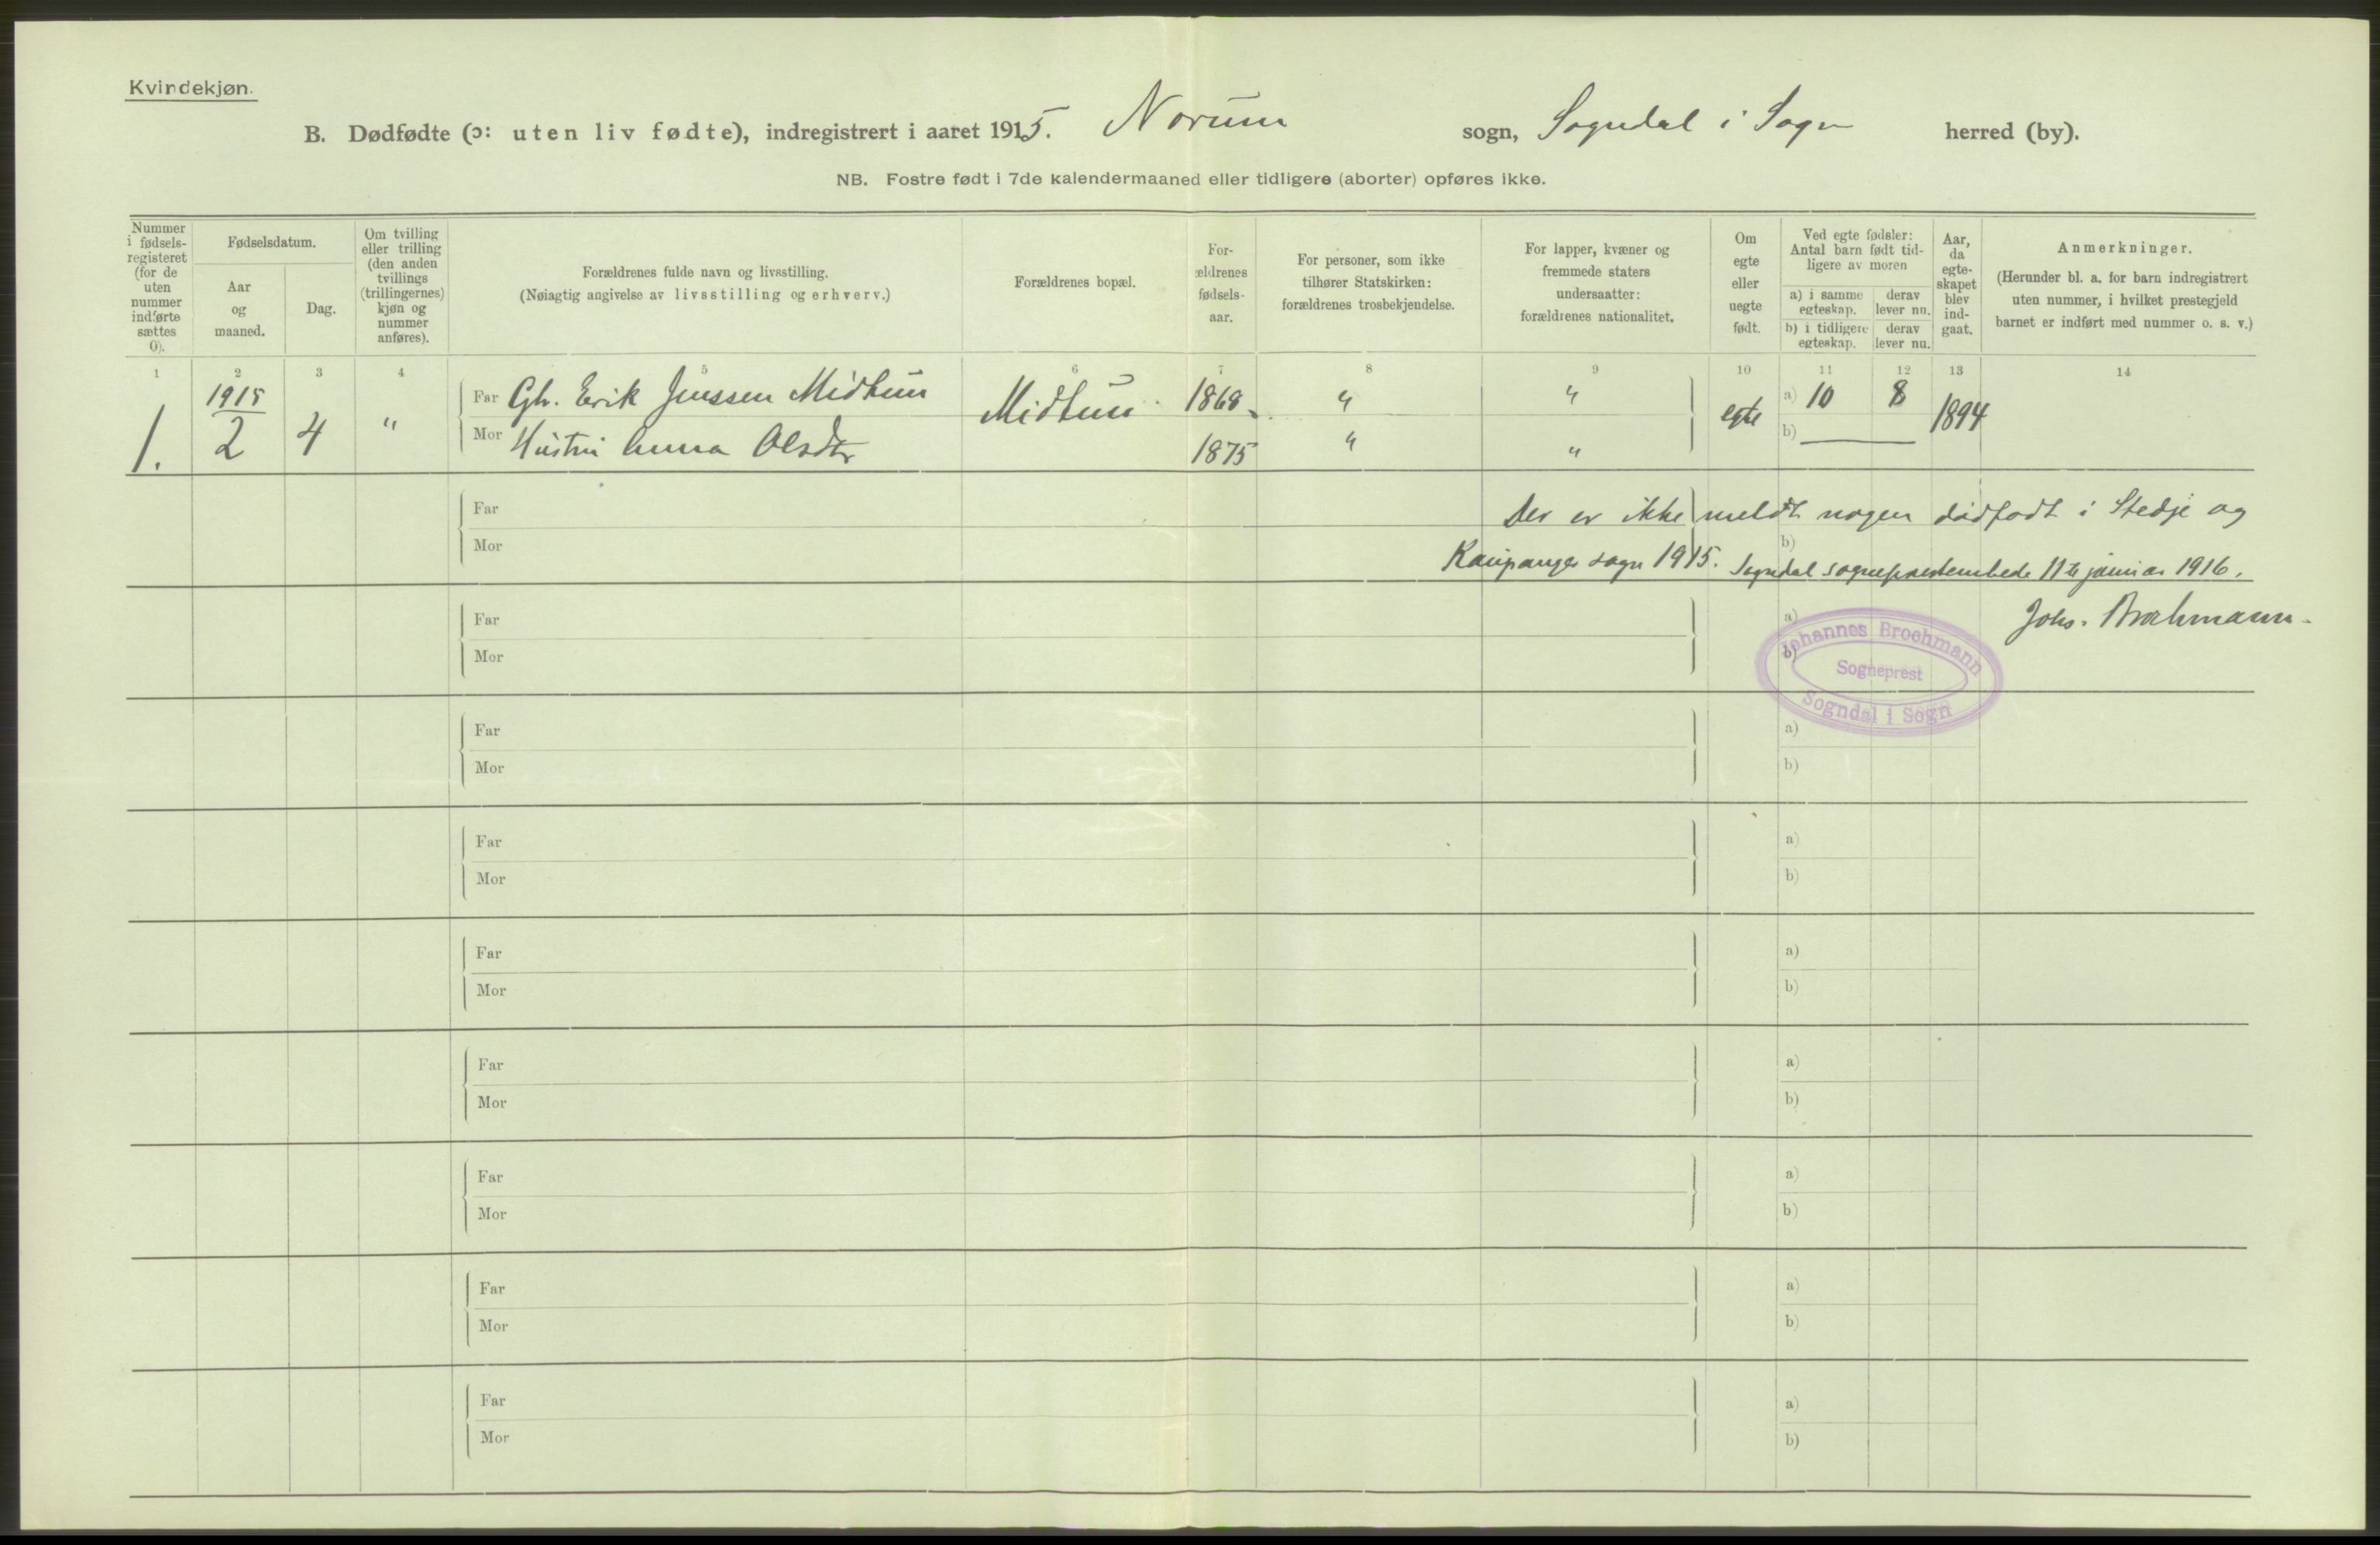 Kvindekjøn.
B. Dødfødte (ɔ: uten liv fødte), indregistrert i aaret 1915. Norum sogn, Sogndal i Sogn herred (by).
NB. Fostre født i 7de kalendermaaned eller tidligere (aborter) opføres ikke.
Nummer i fødsels-registeret (for de uten nummer indførte sættes 0).
Fødselsdatum.
Aar og maaned.
Dag.
Om tvilling eller trilling (den anden tvillings (trillingernes) kjøn og nummer anføres).
Forældrenes fulde navn og livsstilling.
(Nøiagtig angivelse av livsstilling og erhverv.)
Forældrenes bopæl.
For-ældrenes fødsels-aar.
For personer, som ikke tilhører Statskirken: forældrenes trosbekjendelse.
For lapper, kvæner og fremmede staters undersaatter: forældrenes nationalitet.
Om egte eller uegte født.
Ved egte fødsler: Antal barn født tid-ligere av moren
a) i samme egteskap.
derav lever nu.
b) i tidligere egteskap.
derav lever nu.
Aar, da egte-skapet blev ind-gaat.
Anmerkninger.
(Herunder bl. a. for barn indregistrert uten nummer, i hvilket prestegjeld barnet er indført med nummer o. s. v.)
1 2 3 4 5 6 7 8 9 10 11 12 13 14
1. 1915 2 4 " Far Gbr. Erik Jenssen Midtun Midtun 1868 " " egte a) 10 8 1894
Mor Hustru Anna Olsdtr 1875 " " b)
Far
Der er ikke meldt nogen dødfødt i Stedje og
Mor b)
Kaupanger sogn 1915. Sogndal sogneprestembede 11te januar 1916.
Far a)
Johs. Brochmann.
Mor b)
Johannes Brochmann
Sogneprest
Sogndal i Sogn
Far a)
Mor b)
Far a)
Mor b)
Far a)
Mor b)
Far a)
Mor b)
Far a)
Mor b)
Far a)
Mor b)
Far a)
Mor b)